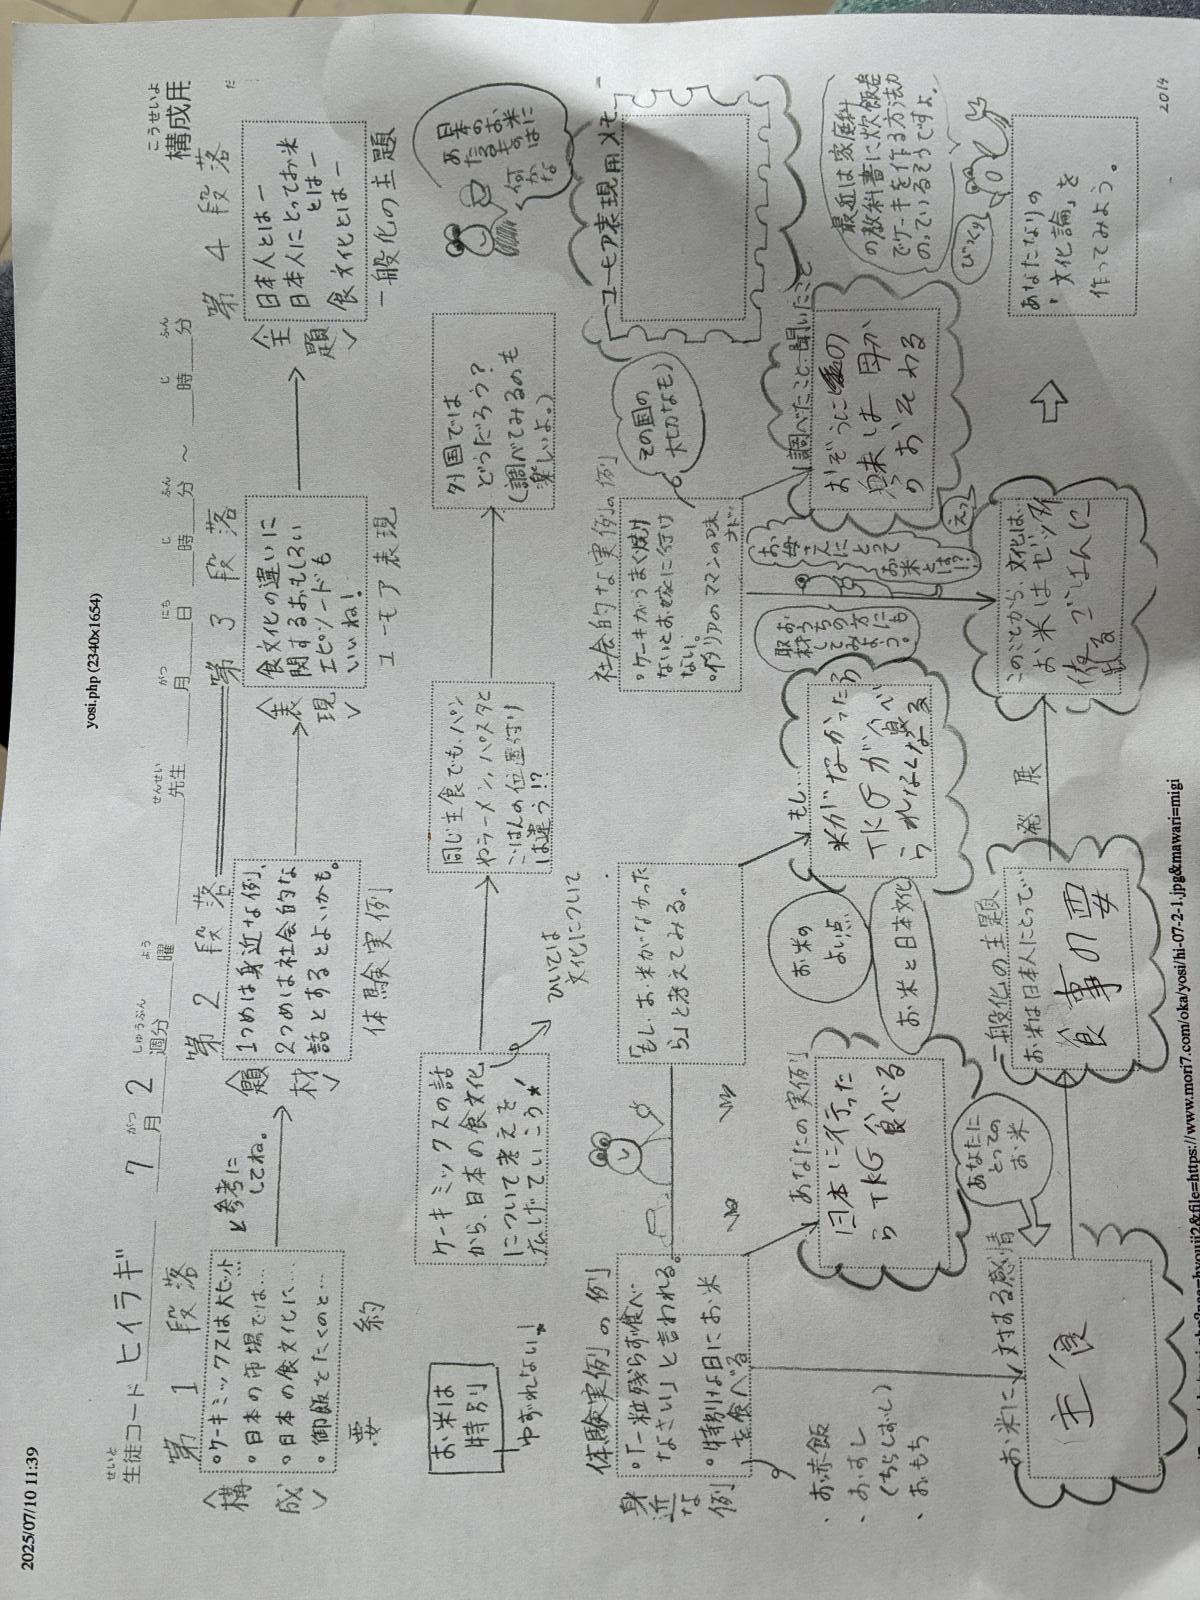 2025/07/10 11:39
yosi.php (2340x1654)
せいと
生徒コード ヒイラギ
がつ しゅうぶん よう せんせい がつ にち じ ふん じ ふん
7月 2週分 曜 先生 月 日 時 分 ～ 時 分
こうせいよ
構成用
だ
第1段落
第2段落
第3段落
第4段落
〈構成〉
・ケーキミックスは大ヒット
・日本の市場では…
・日本の食文化に…
・御飯をたくのと…
要約
と参考に
してね。
〈題材〉
1つめは身近な例、
2つめは社会的な
話とするとよいかも。
体験実例
〈表現〉
食文化の違いに
関するおもしろい
エピソードも
いいね！
ユーモア表現
〈主題〉
日本人とはー
日本人にとってお米
とはー
食文化とはー
一般化の主題
お米は
特別
ゆずれない！
ケーキミックスの話
から、日本の食文化
について考えを
広げていこう！
ひいては
文化について
同じ主食でも、パン
やラーメン、パスタと
ごはんの位置付け
は違う!?
外国では
どうだろう？
(調べてみるのも
楽しいよ。)
体験実例の例
身近な例
・「一粒残らず食べ
なさい」と言われる。
・特別な日にお米
を食べる
・お赤飯
・おすし
(ちらしずし)
・おもち
「もし、お米がなかった
ら」と考えてみる。
社会的な実例の例
・ケーキがうまく焼け
ないとお嫁に行け
ない。
・イタリアのママンの味
その国の
大切なモノ
ユーモア表現用メモ
あなたの実例
日本に行った
らTKG食べる
お米の
よい点
お米と日本文化
もし…
米がなかったら
TKGが食べ
られなくなる
お母さんにとって
お米とは!?
えっ
調べたこと・聞いたこと
おぞうにの
味は母か
らおそわる
最近は家庭科
の教科書に炊飯器
でケーキを作る方法が
のっているそうですよ。
びっくり
お米に対する感情
主食
あなたに
とっての
お米
一般化の主題
お米は日本人にとって…
食事の要
発展
このことから、文化は…
あなたなりの
・「文化論」を
作ってみよう。
2014